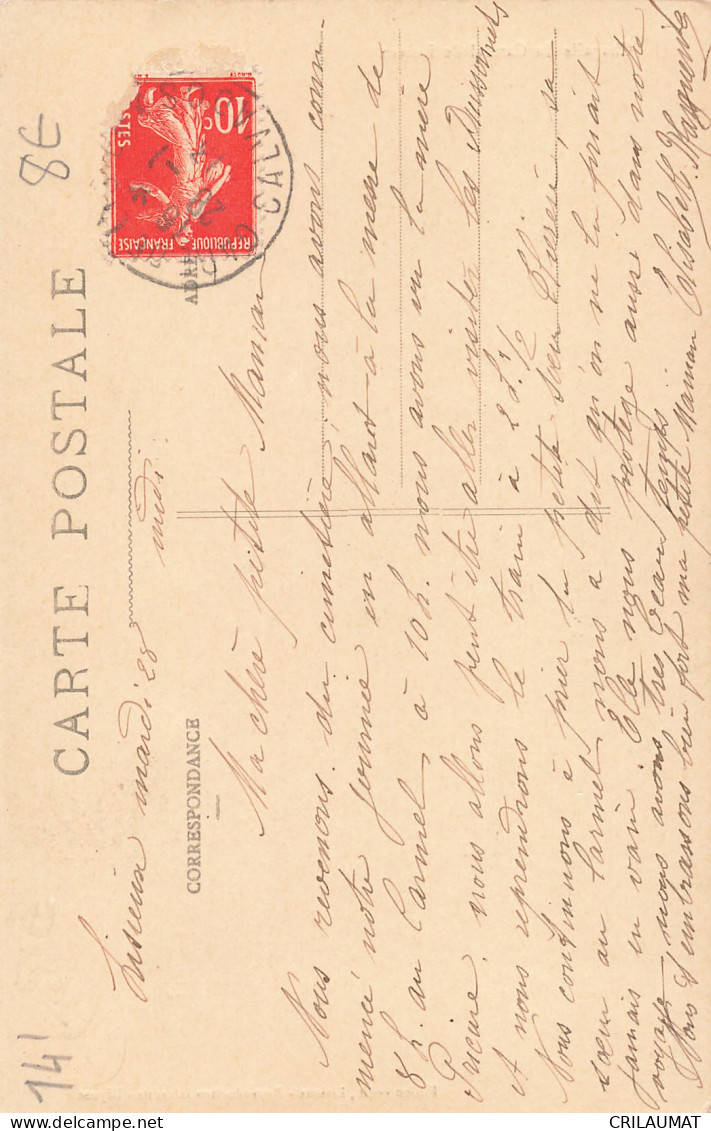 CARTE POSTALE
CORRESPONDANCE
ADRE
10c
POSTES
REPUBLIQUE FRANÇAISE
CALVADOS
8€
14'
Lisieux mardi 28
midi.
Ma chère petite Maman
Nous revenons du cimetière, nous avons com-
mencé notre journée en allant à la messe de
8h. au Carmel, à 10h. nous avons vu la mère
Prieure, nous allons peut être aller visiter les Buissonnets
et nous reprendrons le train à 2h1/2
Nous continuons à prier la petite sœur Thérèse, sa
sœur au Carmel nous a dit qu'on ne la priait
jamais en vain. Elle nous protège aussi dans notre
voyage, nous avons très beau temps.
Nous t'embrassons bien fort ma petite Maman Elisabeth Marguerite
CRILAUMAT